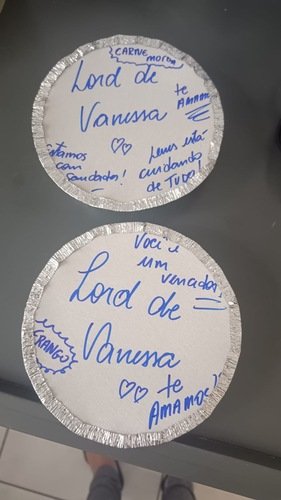 CARNE
MOIDA
Lord de
Vanessa
te
AMAMOS
Estamos
com
Saudades!
Deus está
cuidando
de TUDO!
Você é
um
vencedor!
Lord de
Vanessa
FRANGO
te
AMAMOS!